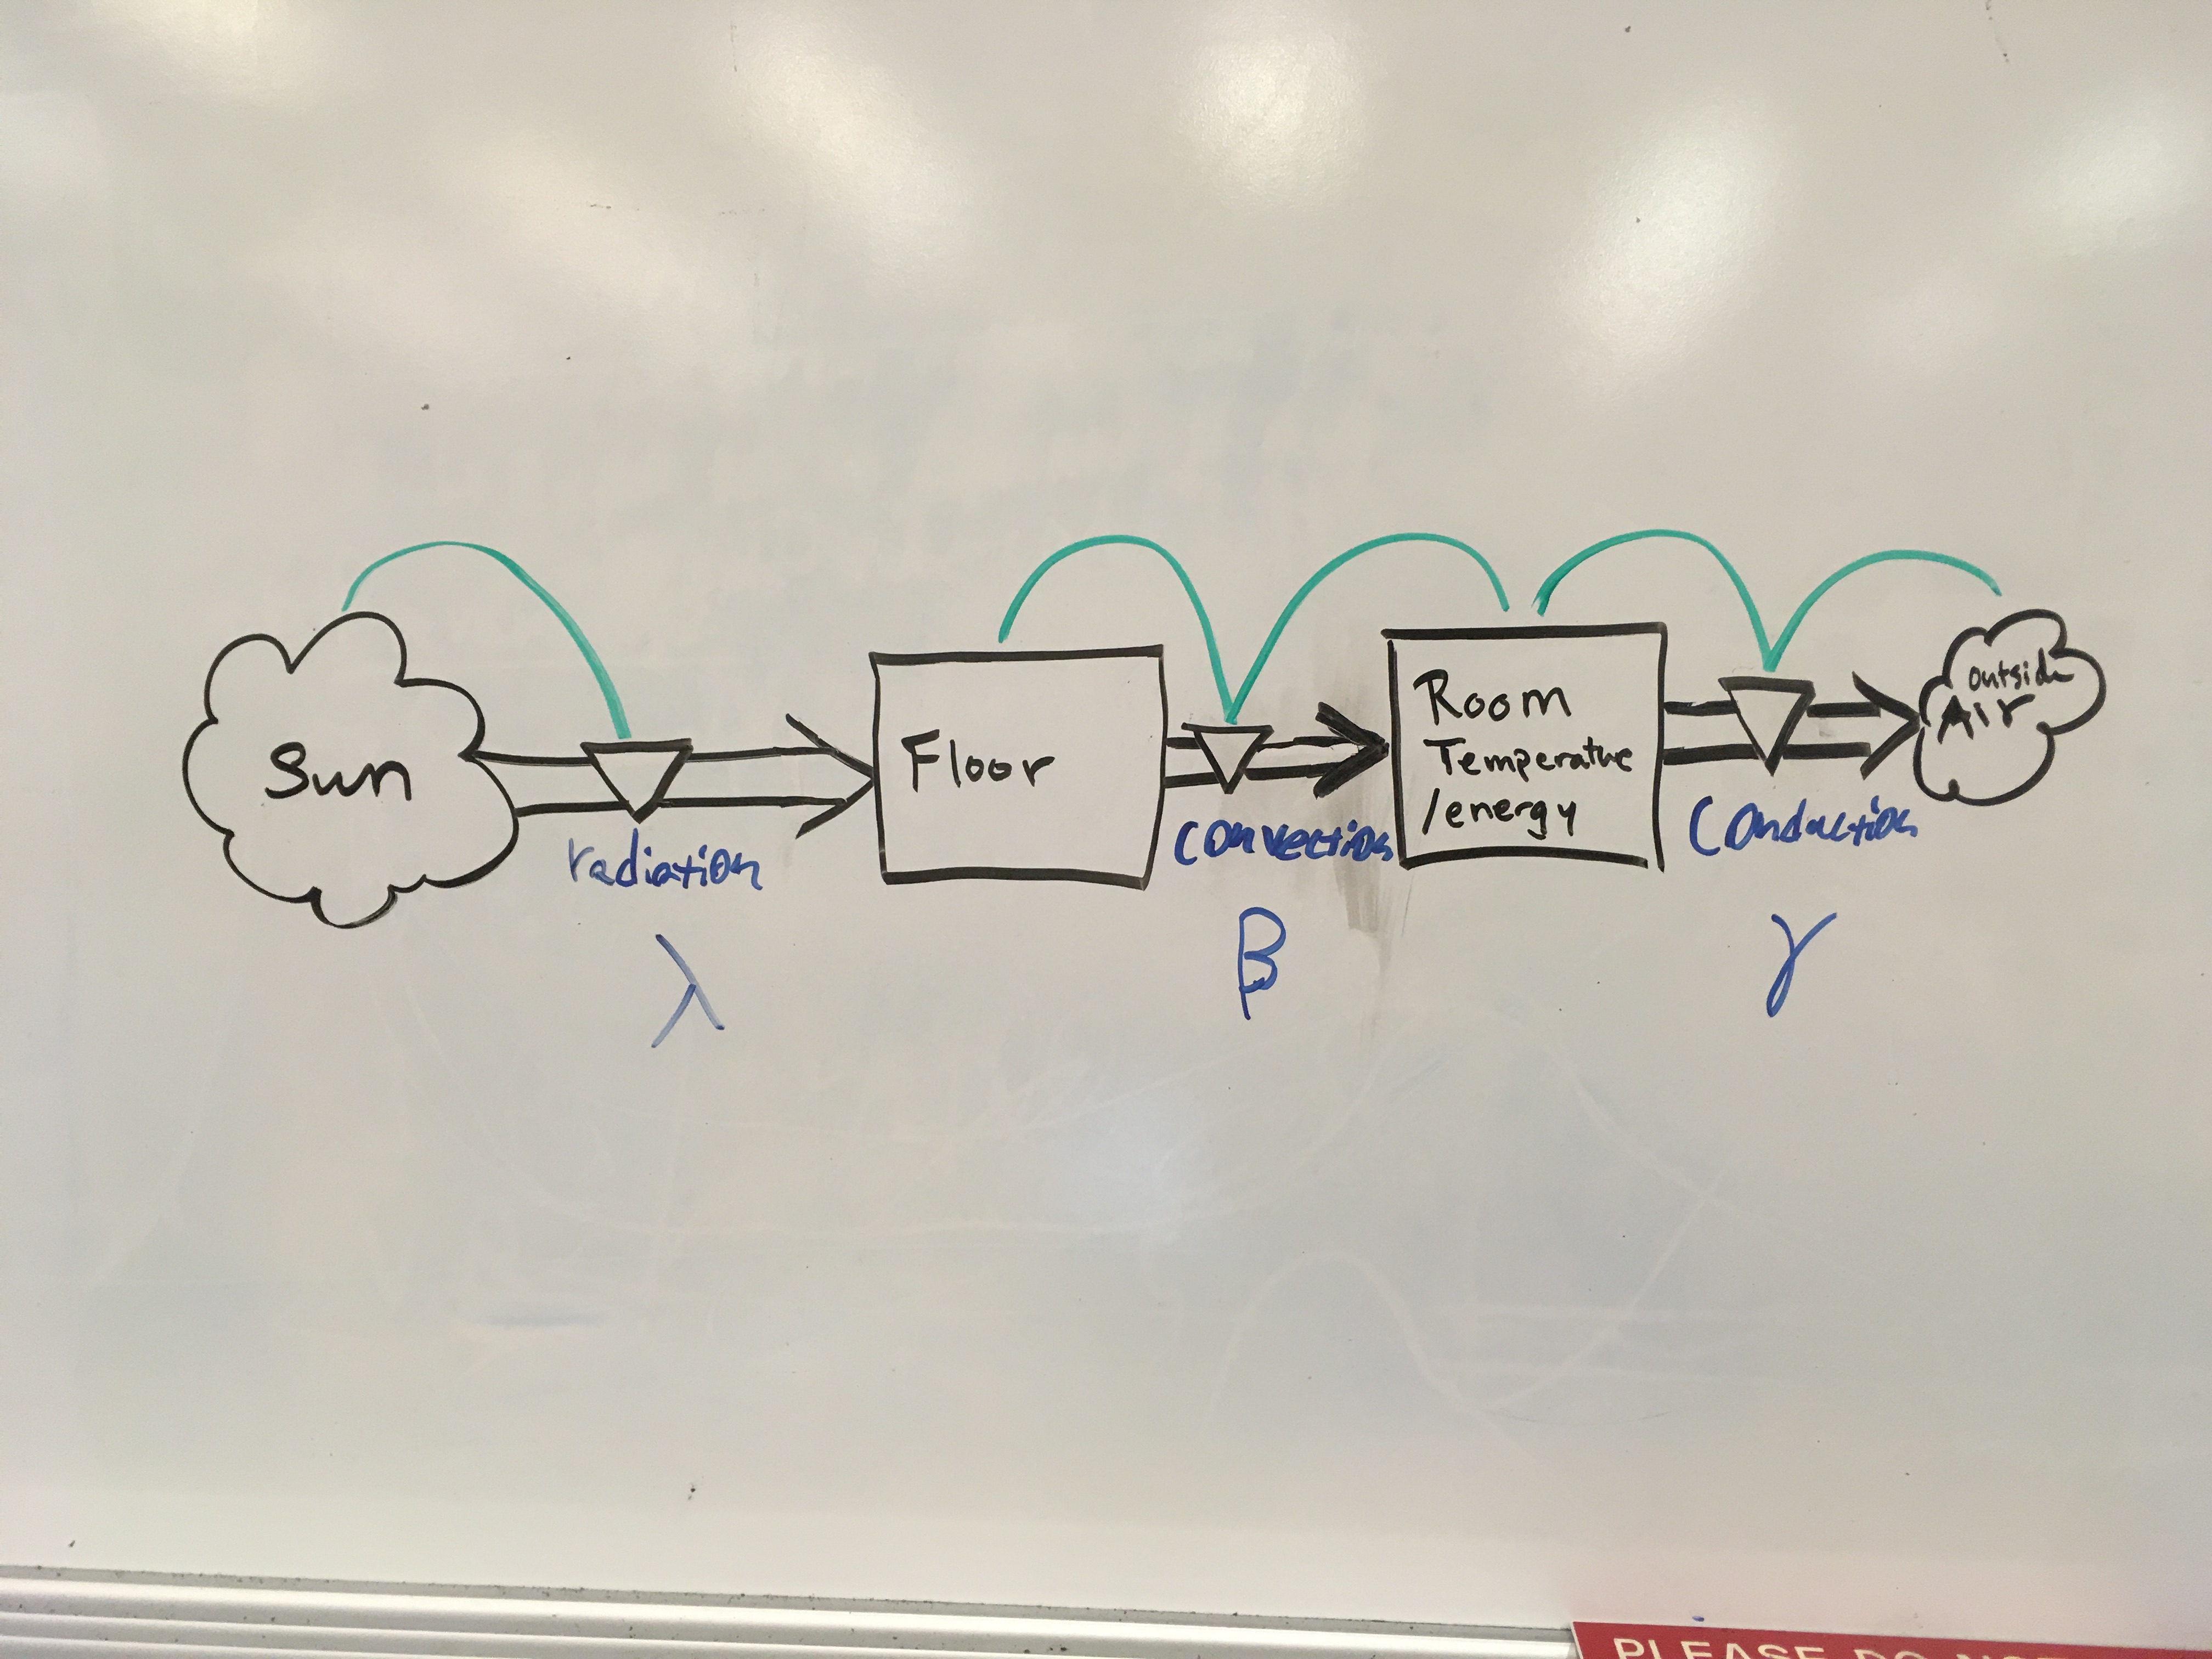 Sun
radiation
λ
Floor
Convection
β
Room
Temperature
/energy
Conduction
γ
outside
Air
PLEASE DO NOT